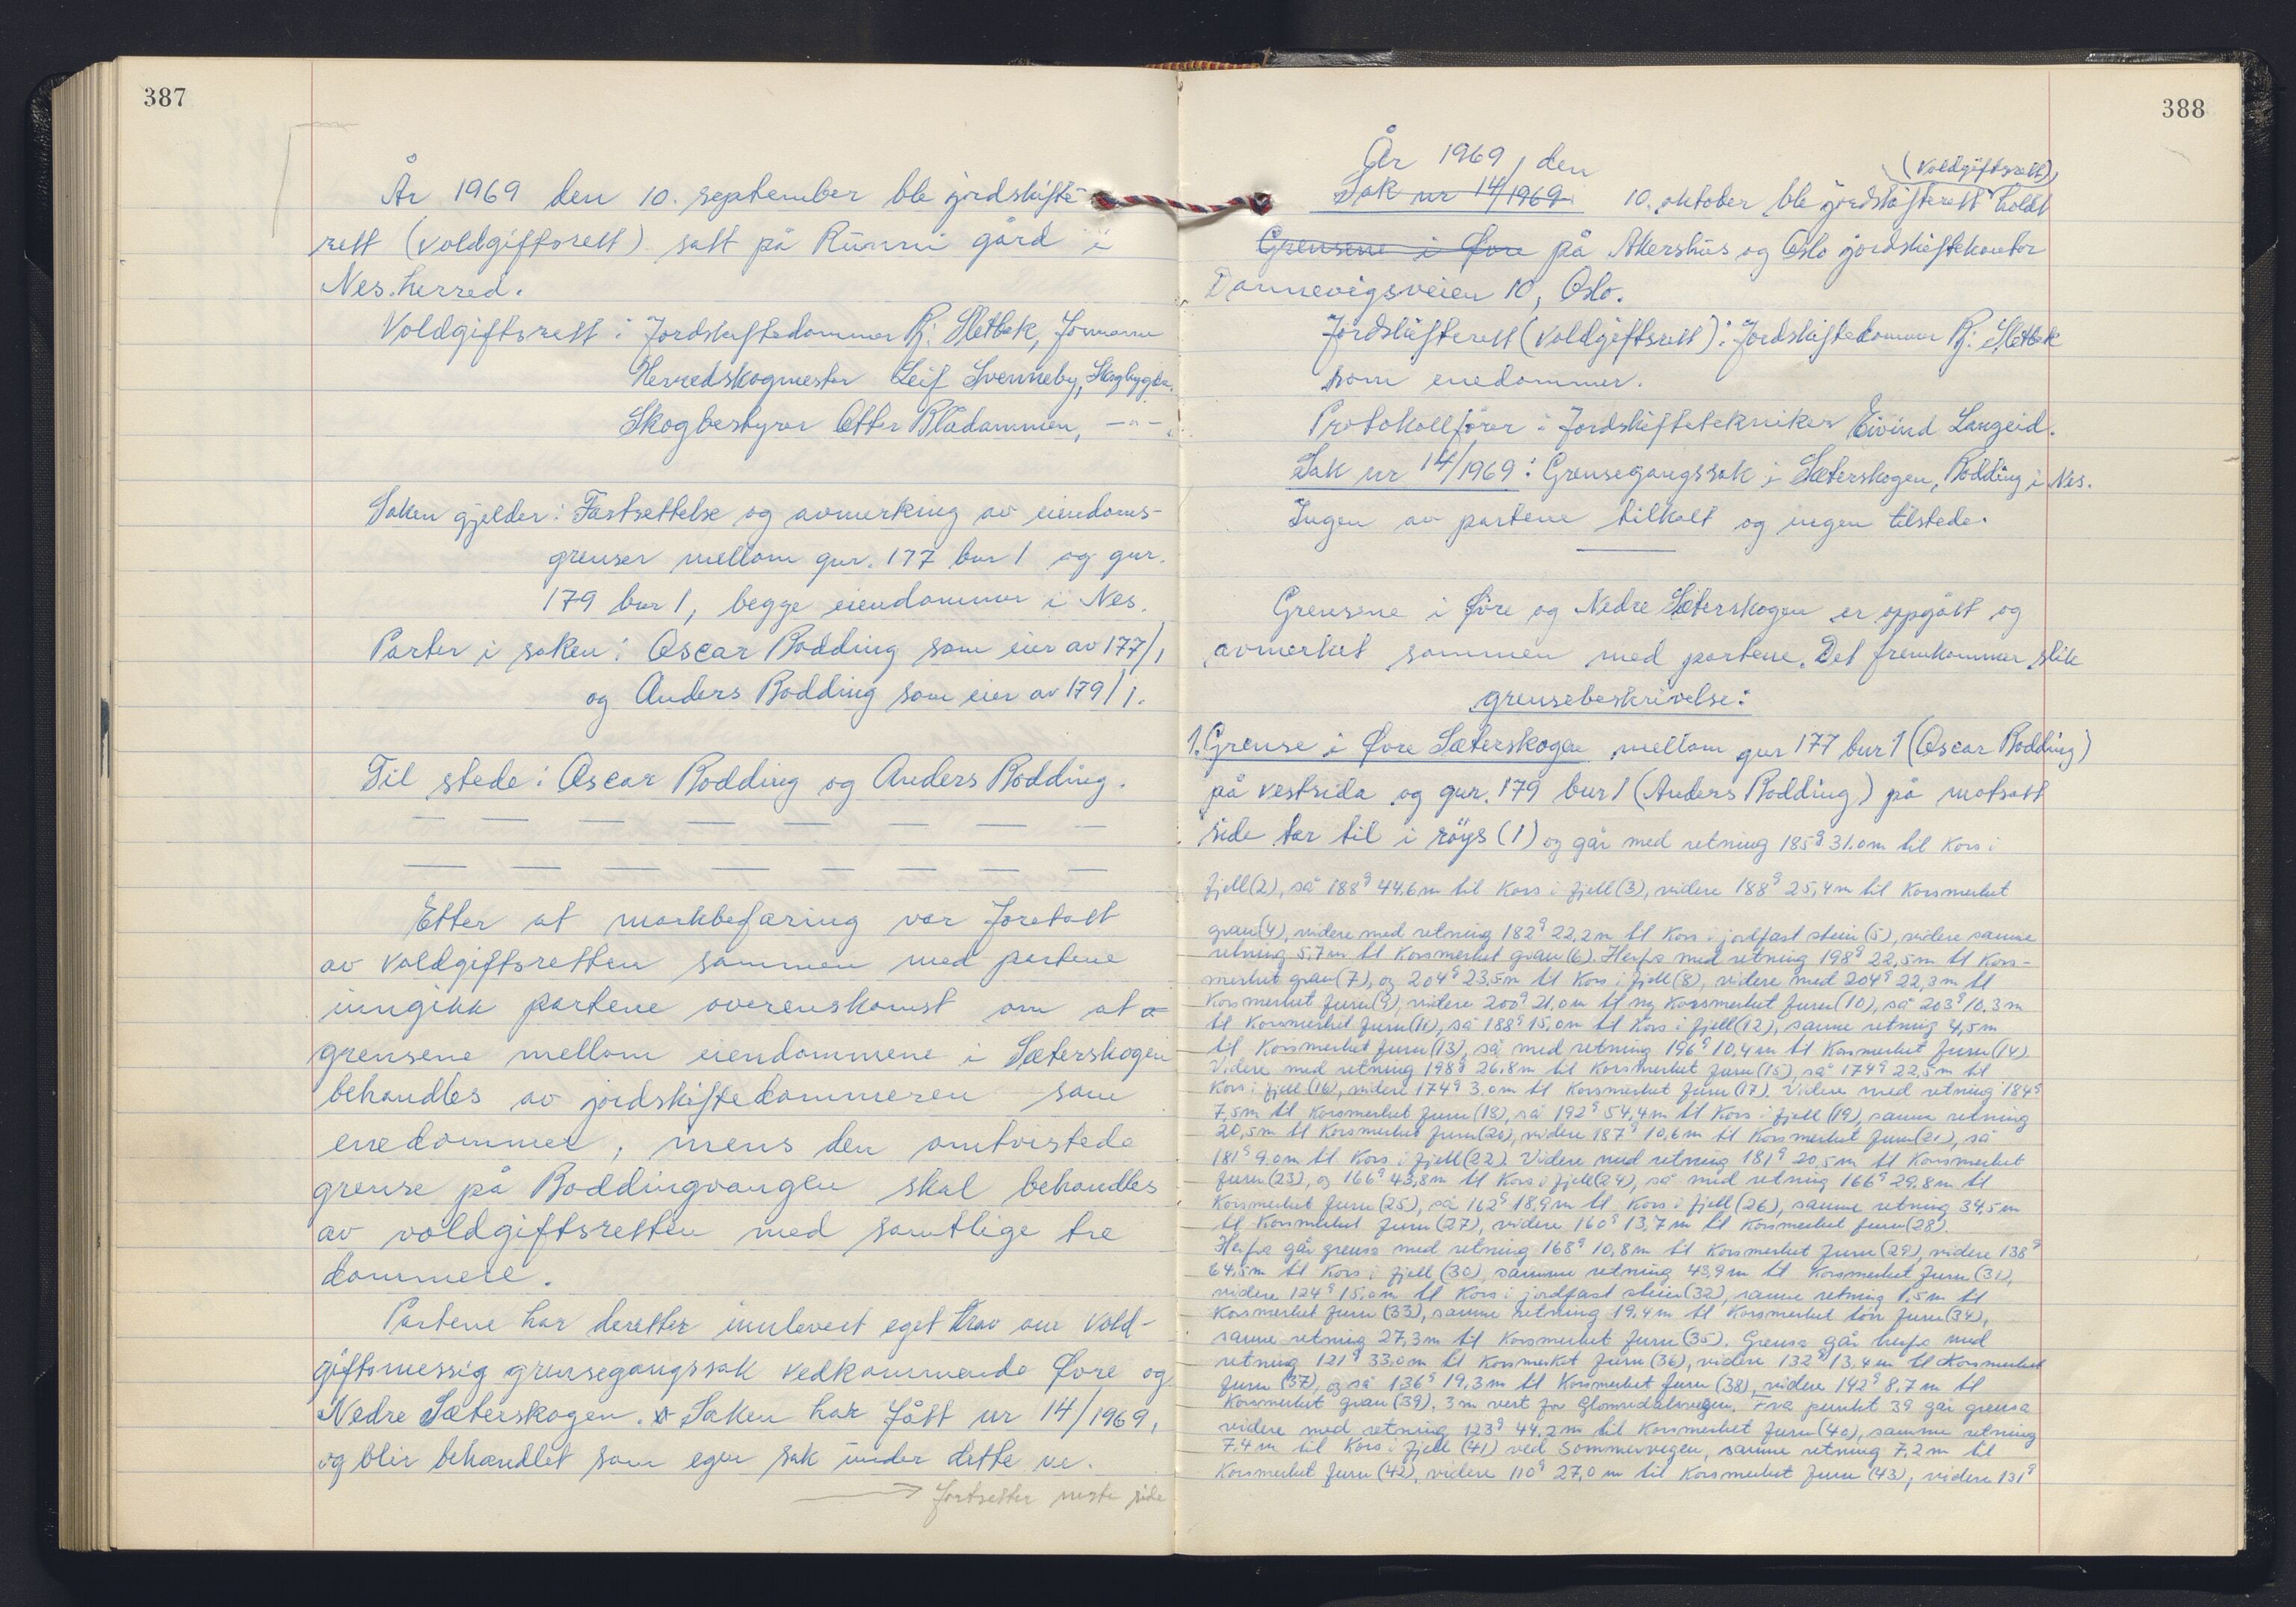 387
År 1969 den 10. september ble jordskifte-
rett (voldgiftsrett) satt på Runni gård i
Nes herred.
Voldgiftsrett: Jordskiftedommer Rj: Sletbak, formann
Herredskogmester Leif Svenneby, Skogbygda.
Skogbestyrer Otter Blådammen, -"-
Saken gjelder: Fastsettelse og avmerking av eiendoms-
grenser mellom gnr. 177 bnr 1 og gnr.
179 bnr 1, begge eiendommer i Nes.
Parter i saken: Oscar Rodding som eier av 177/1
og Anders Rodding som eier av 179/1.
Til stede: Oscar Rodding og Anders Rodding.
Etter at markbefaring var foretatt
av voldgiftsretten sammen med partene
inngikk partene overenskomst om at
grensene mellom eiendommene i Sæterskogen
behandles av jordskiftedommeren som
enedommer, mens den omtvistede
grense på Roddingvangen skal behandles
av voldgiftsretten med samtlige tre
dommere.
Partene har deretter innlevert eget krav om vold-
giftsmessig grensegangssak vedkommende Øvre og
Nedre Sæterskogen. Saken har fått nr 14/1969,
og blir behandlet som egen sak under dette nr.
→ fortsetter neste side
388
År 1969, den
(voldgiftsrett)
Sak nr 14/1969. 10. oktober ble jordskifterett holdt
Grensene i Øvre på Akershus og Oslo jordskiftekontor
Dannevigsveien 10, Oslo.
Jordskifterett (voldgiftsrett): Jordskiftedommer Rj: Sletbak
som enedommer.
Protokollfører: Jordskiftetekniker Eivind Langeid.
Sak nr 14/1969: Grensegangssak i Sæterskogen, Rodding i Nes.
Ingen av partene tilkalt og ingen tilstede.
Grensene i Øvre og Nedre Sæterskogen er oppgått og
avmerket sammen med partene. Det fremkommer slik
grensebeskrivelse:
1. Grense i Øvre Sæterskogen mellom gnr 177 bnr 1 (Oscar Rodding)
på vestsida og gnr. 179 bnr 1 (Anders Rodding) på motsatt
side tar til i röys (1) og går med retning 185g 31.0m til kors i
fjell (2), så 188g 44.6m til kors i fjell (3), videre 188g 25,4m til korsmerket
gran (4), videre med retning 182g 22,2m til kors i jordfast stein (5), videre samme
retning 5.7m til korsmerket gran (6). Herfra med retning 198g 22,5m til kors-
merket gran (7), og 204g 23.5m til kors i fjell (8), videre med 204g 22,3m til
korsmerket furu (9), videre 200g 21,0m til ny korsmerket furu (10), så 203g 10.3m
til korsmerket furu (11), så 188g 15,0m til kors i fjell (12), samme retning 4,5m
til korsmerket furu (13), så med retning 196g 10.4m til korsmerket furu (14)
Videre med retning 198g 26.8m til korsmerket furu (15), så 174g 22,5m til
kors i fjell (16), videre 174g 3.0m til korsmerket furu (17). Videre med retning 184g
7,5m til korsmerket furu (18), så 192g 54,4m til kors i fjell (19), samme retning
20,5m til korsmerket furu (20), videre 187g 10,6m til korsmerket furu (21), så
181g 9.0m til kors i fjell (22). Videre med retning 181g 20,5m til korsmerket
furu (23), og 166g 43,8m til kors i fjell (24), så med retning 166g 29.8m til
korsmerket furu (25), så 162g 18.9m til kors i fjell (26), samme retning 34,5m
til korsmerket furu (27), videre 160g 13,7m til korsmerket furu (28).
Herfra går grensa med retning 168g 10,8m til korsmerket furu (29), videre 138g
64,5m til kors i fjell (30), samme retning 43,9m til korsmerket furu (31),
videre 124g 15,0m til kors i jordfast stein (32), samme retning 1,5m til
korsmerket furu (33), samme retning 19.4m til korsmerket tørr furu (34),
samme retning 27,3m til korsmerket furu (35). Grensa går herfra med
retning 121g 33,0m til korsmerket furu (36), videre 132g 13,4m til korsmerket
furu (37), og så 136g 19,3m til korsmerket furu (38), videre 142g 8,7m til
korsmerket gran (39), 3m vest for Glomsdalsvegen. Fra punkt 39 går grensa
videre med retning 123g 44,2m til korsmerket furu (40), samme retning
7.4m til kors i fjell (41) ved Sommervegen, samme retning 7,2m til
korsmerket furu (42), videre 110g 27,0m til korsmerket furu (43), videre 131g